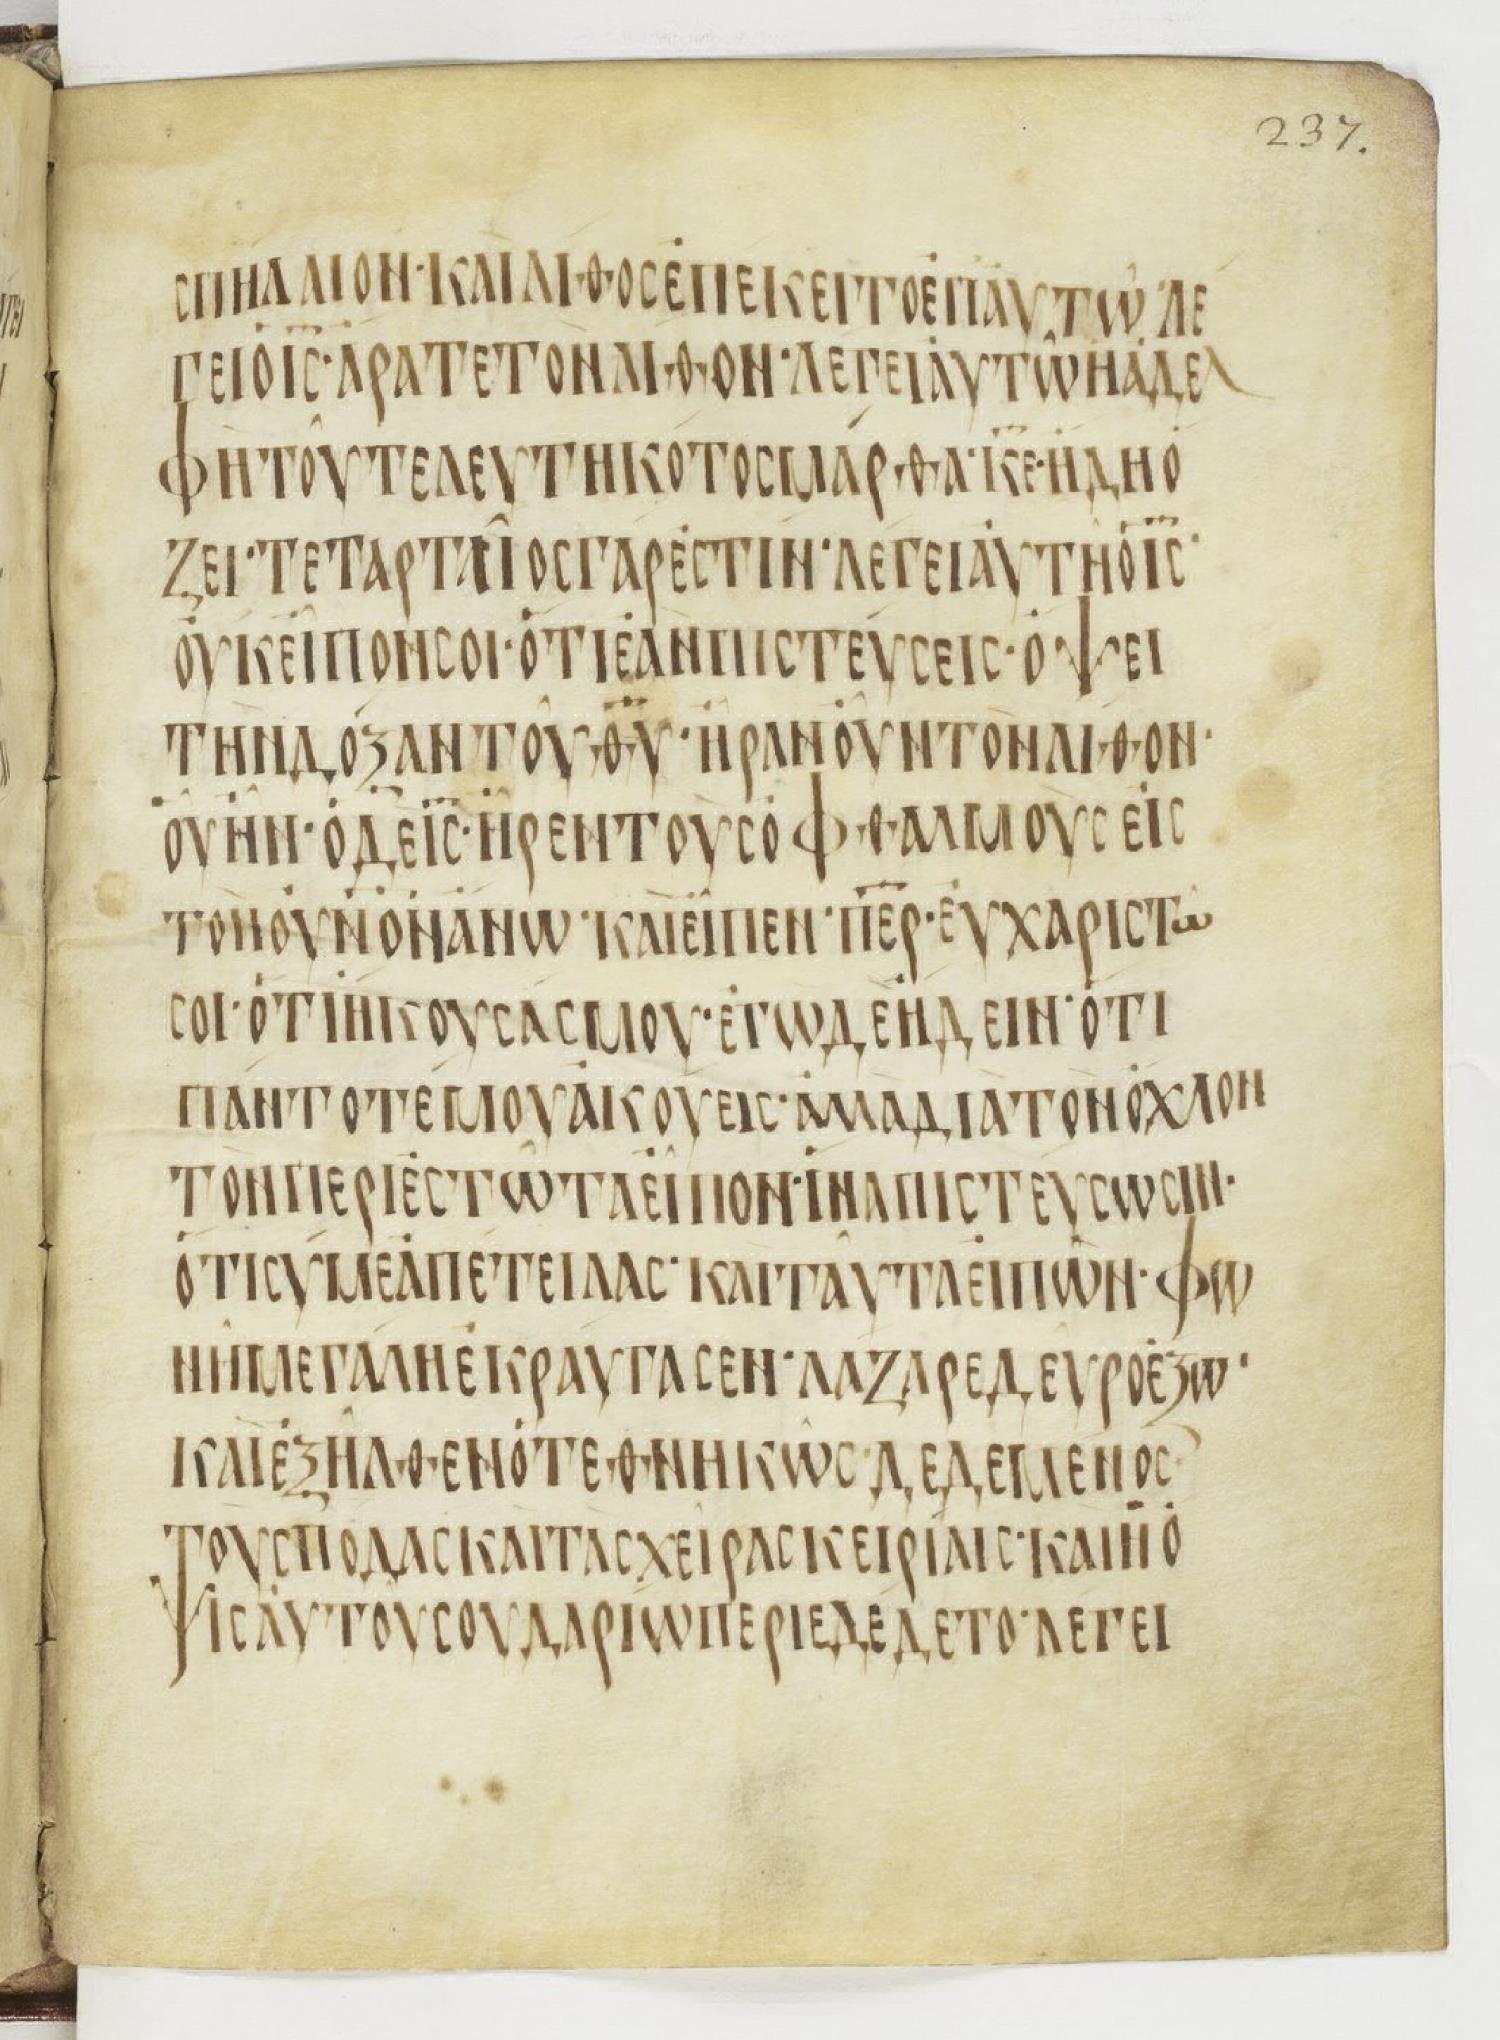 237.
ϹΠΗΛΑΙΟΝ·ΚΑΙΛΙΘΟϹἘΠΕΚΕΙΤΟἘΠἈΥΤῶ·ΛΕ
ΓΕΙὉΙ̅Ϲ̅·ἈΡΑΤΕΤΟΝΛΙΘΟΝ·ΛΕΓΕΙἈΥΤῶἩἈΔΕΛ
ΦΗΤΟΥΤΕΛΕΥΤΗΚΟΤΟϹΜΑΡΘΑ·Κ̅Ε̅·ἨΔΗὈ
ΖΕΙ·ΤΕΤΑΡΤΑΙΟϹΓΑΡἘϹΤΙΝ·ΛΕΓΕΙἈΥΤΗὉΙ̅Ϲ̅·
ὀΥΚΕἸΠΟΝϹΟΙ·ὉΤΙἘΑΝΠΙϹΤΕΥϹΕΙϹ·ὈΨΕΙ
ΤΗΝΔΟΞΑΝΤΟΥΘ̅Υ̅·ἨΡΑΝὀΥΝΤΟΝΛΙΘΟΝ·
ὁΥἨΝ·ὉΔΕΙ̅Ϲ̅·ἨΡΕΝΤΟΥϹὈΦΘΑΛΜΟΥϹἐΙϹ
ΤΟΝΟΥΝΟΝἈΝΩ·ΚΑΙἐΙΠΕΝ·Π̅Ε̅Ρ̅·ἐΥΧΑΡΙϹΤΩ
ϹΟΙ·ὉΤΙἨΚΟΥϹΑϹΜΟΥ·ἘΓΩΔΕἨΔΕΙΝ·ὉΤΙ
ΠΑΝΤΟΤΕΜΟΥἈΚΟΥΕΙϹ·ἀΛΛΑΔΙΑΤΟΝὈΧΛΟΝ
ΤΟΝΠΕΡΙΕϹΤΩΤΑἐΙΠΟΝ·ἹΝΑΠΙϹΤΕΥϹΩϹΙΝ·
ὉΤΙϹΥΜΕἈΠΕΤΕΙΛΑϹ·ΚΑΙΤΑΥΤΑἐΙΠΩΝ·ΦΩ
ΝΗΜΕΓΑΛΗἘΚΡΑΥΓΑϹΕΝ·ΛΑΖΑΡΕΔΕΥΡΟἘΞΩ·
ΚΑΙἘΞΗΛΘΕΝὉΤΕΘΝΗΚΩϹ·ΔΕΔΕΜΕΝΟϹ
ΤΟΥϹΠΟΔΑϹΚΑΙΤΑϹΧΕΙΡΑϹΚΕΙΡΙΑΙϹ·ΚΑΙΗὈ
ΨΙϹἀΥΤΟΥϹΟΥΔΑΡΙΩΠΕΡΙΕΔΕΔΕΤΟ·ΛΕΓΕΙ